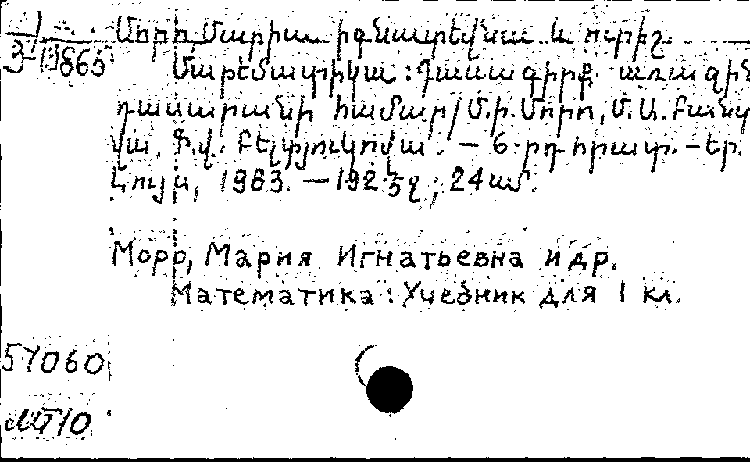 1
3-19865
Մորո Մարիա Իգնատեվնա և ուրիշ.
Մաթեմատիկա : Դասագիրք առաջին
դասարանի համար/Մ.Ի.Մորո, Մ.Ա.Բանտ
վա, Գ.Վ. Բելտյուկովա. – 6-րդ հրատ. – Եր.
Լույս, 1983. – 192 էջ; 24սմ.
Моро, Мария Игнатьевна и др.
Математика : Учебник для 1 кл.
57060
МТ10